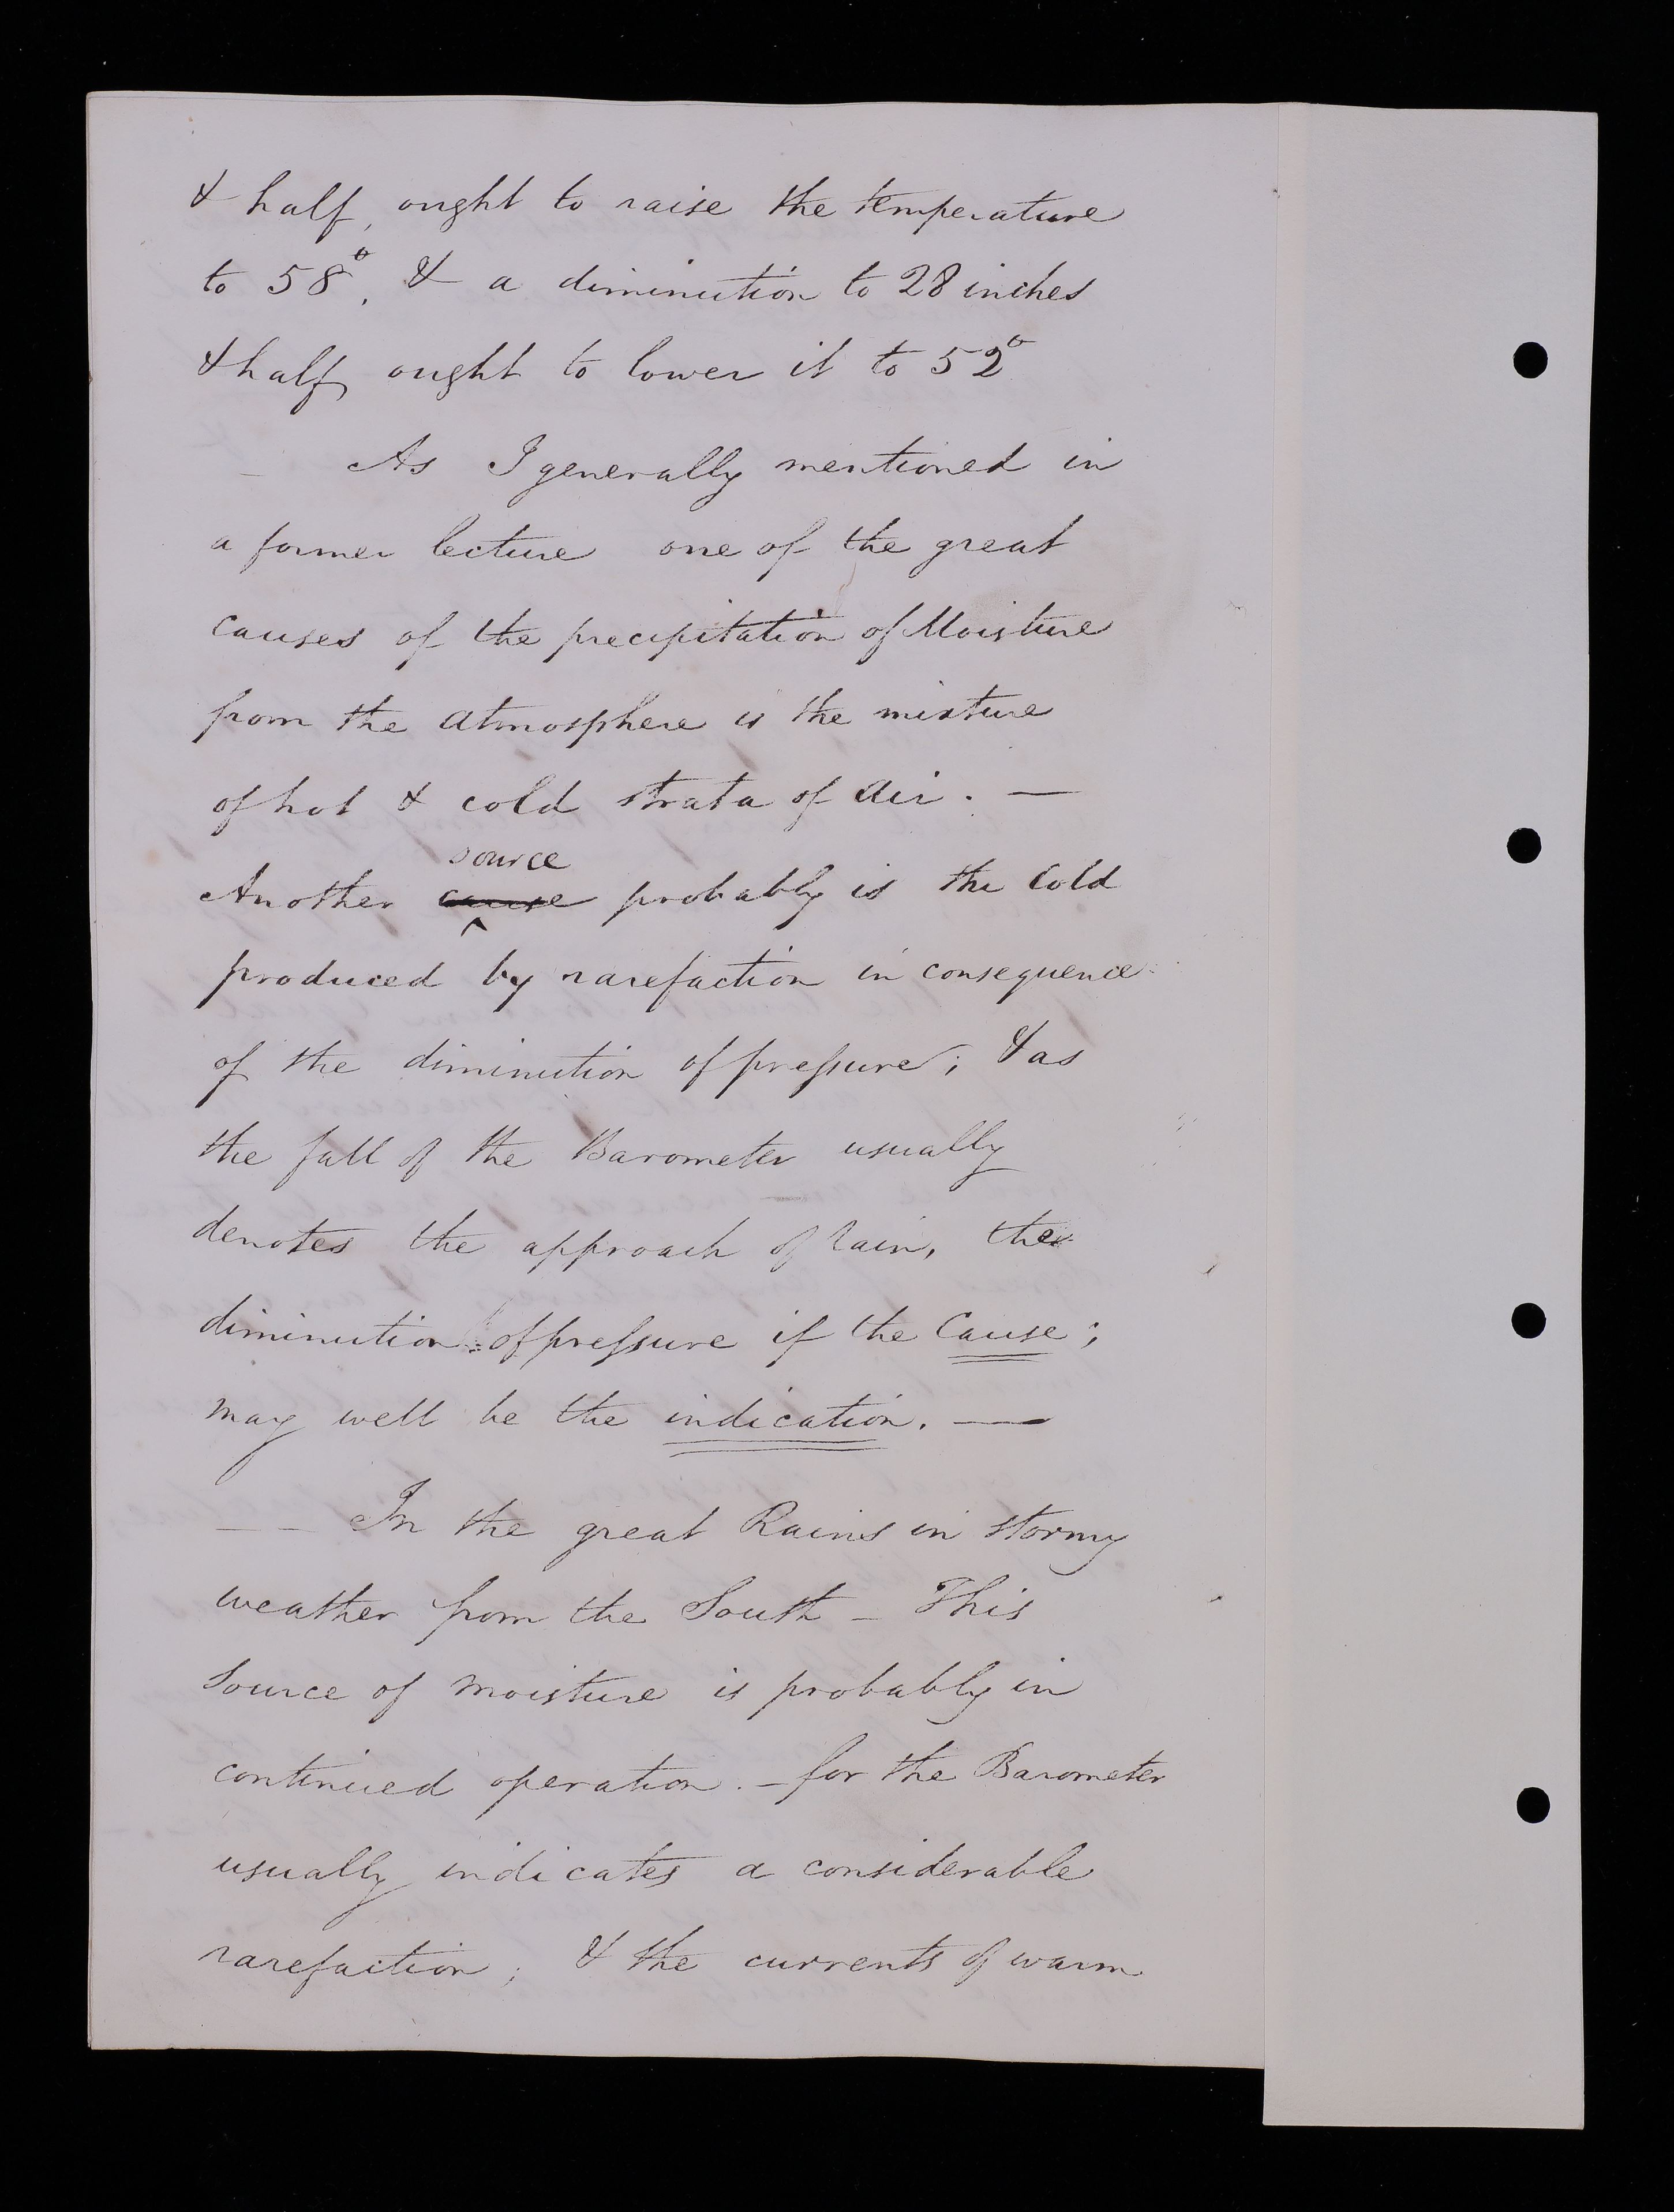 & half, ought to raise the temperature
to 58°, & a diminution to 28 inches
& half, ought to lower it to 52°
– As I generally mentioned in
a former lecture one of the great
causes of the precipitation of Moisture
from the atmosphere is the mixture
of hot & cold strata of air. —
source
Another cause probably is the Cold
^
produced by rarefaction in consequence
of the diminution of preſsure; & as
the fall of the Barometer usually
denotes the approach of rain, the
diminution of preſsure if the Cause;
may well be the indication. —
– – In the great Rains in stormy
weather from the South – This
Source of moisture is probably in
continued operation. – for the Barometer
usually indicates a considerable
rarefaction; & the currents of warm